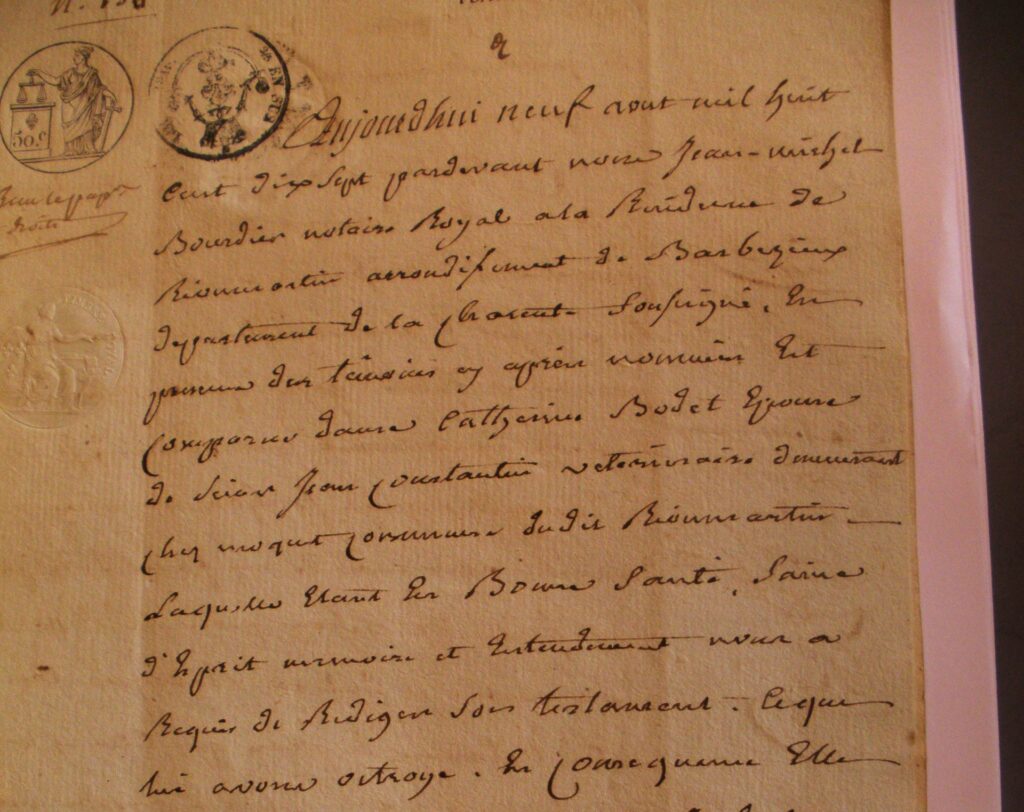 50c
Aujourdhui neuf aout mil huit
Cent dix Sept pardevant nous Jean-michel
Bourdier notaire Royal a la Residence de
Rioumartin arrondissement de Barbezieux
departement de la Charente Soussigné, En
presence des temoins cy après nommés Est
Comparue dame Catherine Bodet Epouse
de Sieur Jean Constantin veterinaire demeurant
chez moquet commune dudit Rioumartin
Laquelle Etant En Bonne Santé, Saine
d'Esprit memoire et Entendement nous a
Requis de Rediger Son testament. Ceque
lui avons octroyé. En Consequence Elle